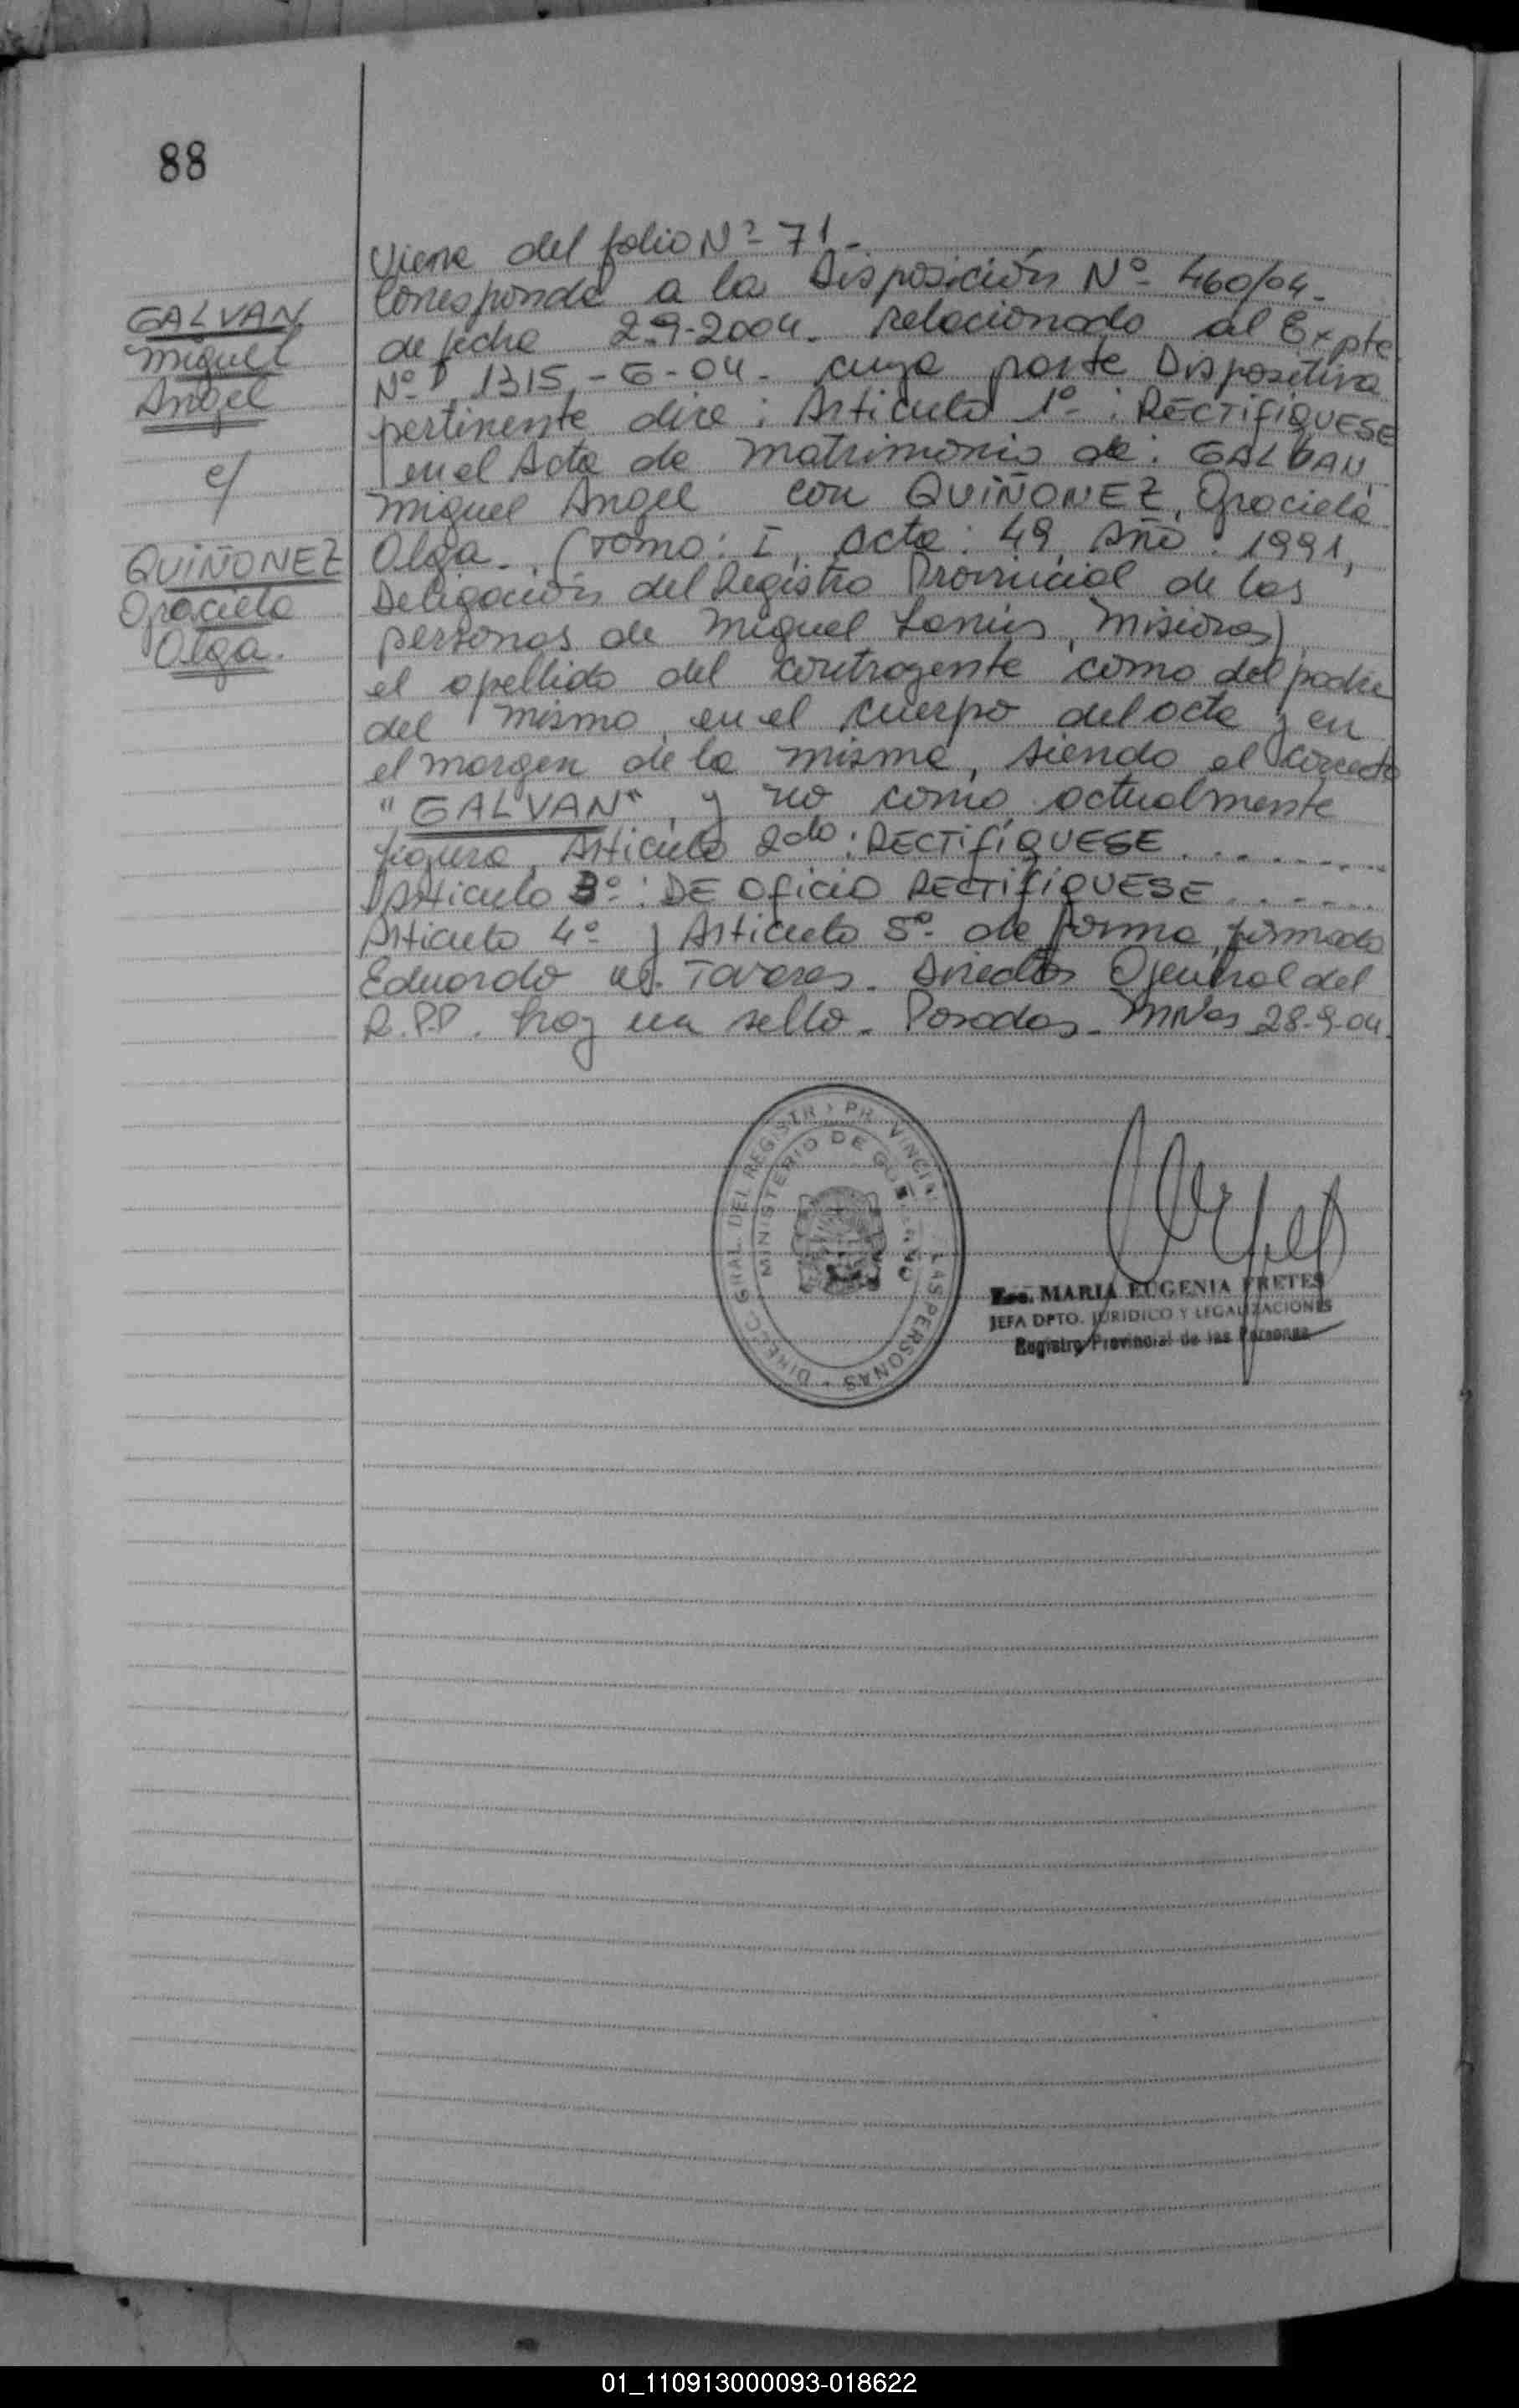 88
Viene del folio Nº 71.-
Corresponde a la Disposición Nº 460/04.-
de fecha 2-9-2004. relacionado al Expte
Nº 1315,-G-04- cuya parte Dispositiva
pertinente dice: Articulo 1º: RECTIFIQUESE
en el Acta de matrimonio de: GALBAN,
Miguel Angel con QUIÑONEZ, Graciela
Olga. (Tomo: I, Acta: 49, Año: 1991,
Delegación del Registro Provincial de las
personas de Miguel Lanús, Misiones)
el apellido del contrayente como del padre
del mismo, en el cuerpo del acta y en
el margen de la misma, siendo el correcto
"GALVAN", y no como actualmente
figura, Articulo 2do: RECTIFIQUESE ........
Articulo 3º: DE OFICIO RECTIFIQUESE ......
Articulo 4º y Articulo 5º de forma, firmado
Eduardo Tavares. Director General del
R.P.P. hay un sello. Posadas. Mnes 28-9-04.
GALVAN
Miguel
Angel
c/
QUIÑONEZ
Graciela
Olga.
DIRECC. GRAL. DEL REGISTRO PROVINCIAL LAS PERSONAS
MINISTERIO DE GOBIERNO
Esc. MARIA EUGENIA FRETES
JEFA DPTO. JURIDICO Y LEGALIZACIONES
Registro Provincial de las Personas
01_110913000093-018622